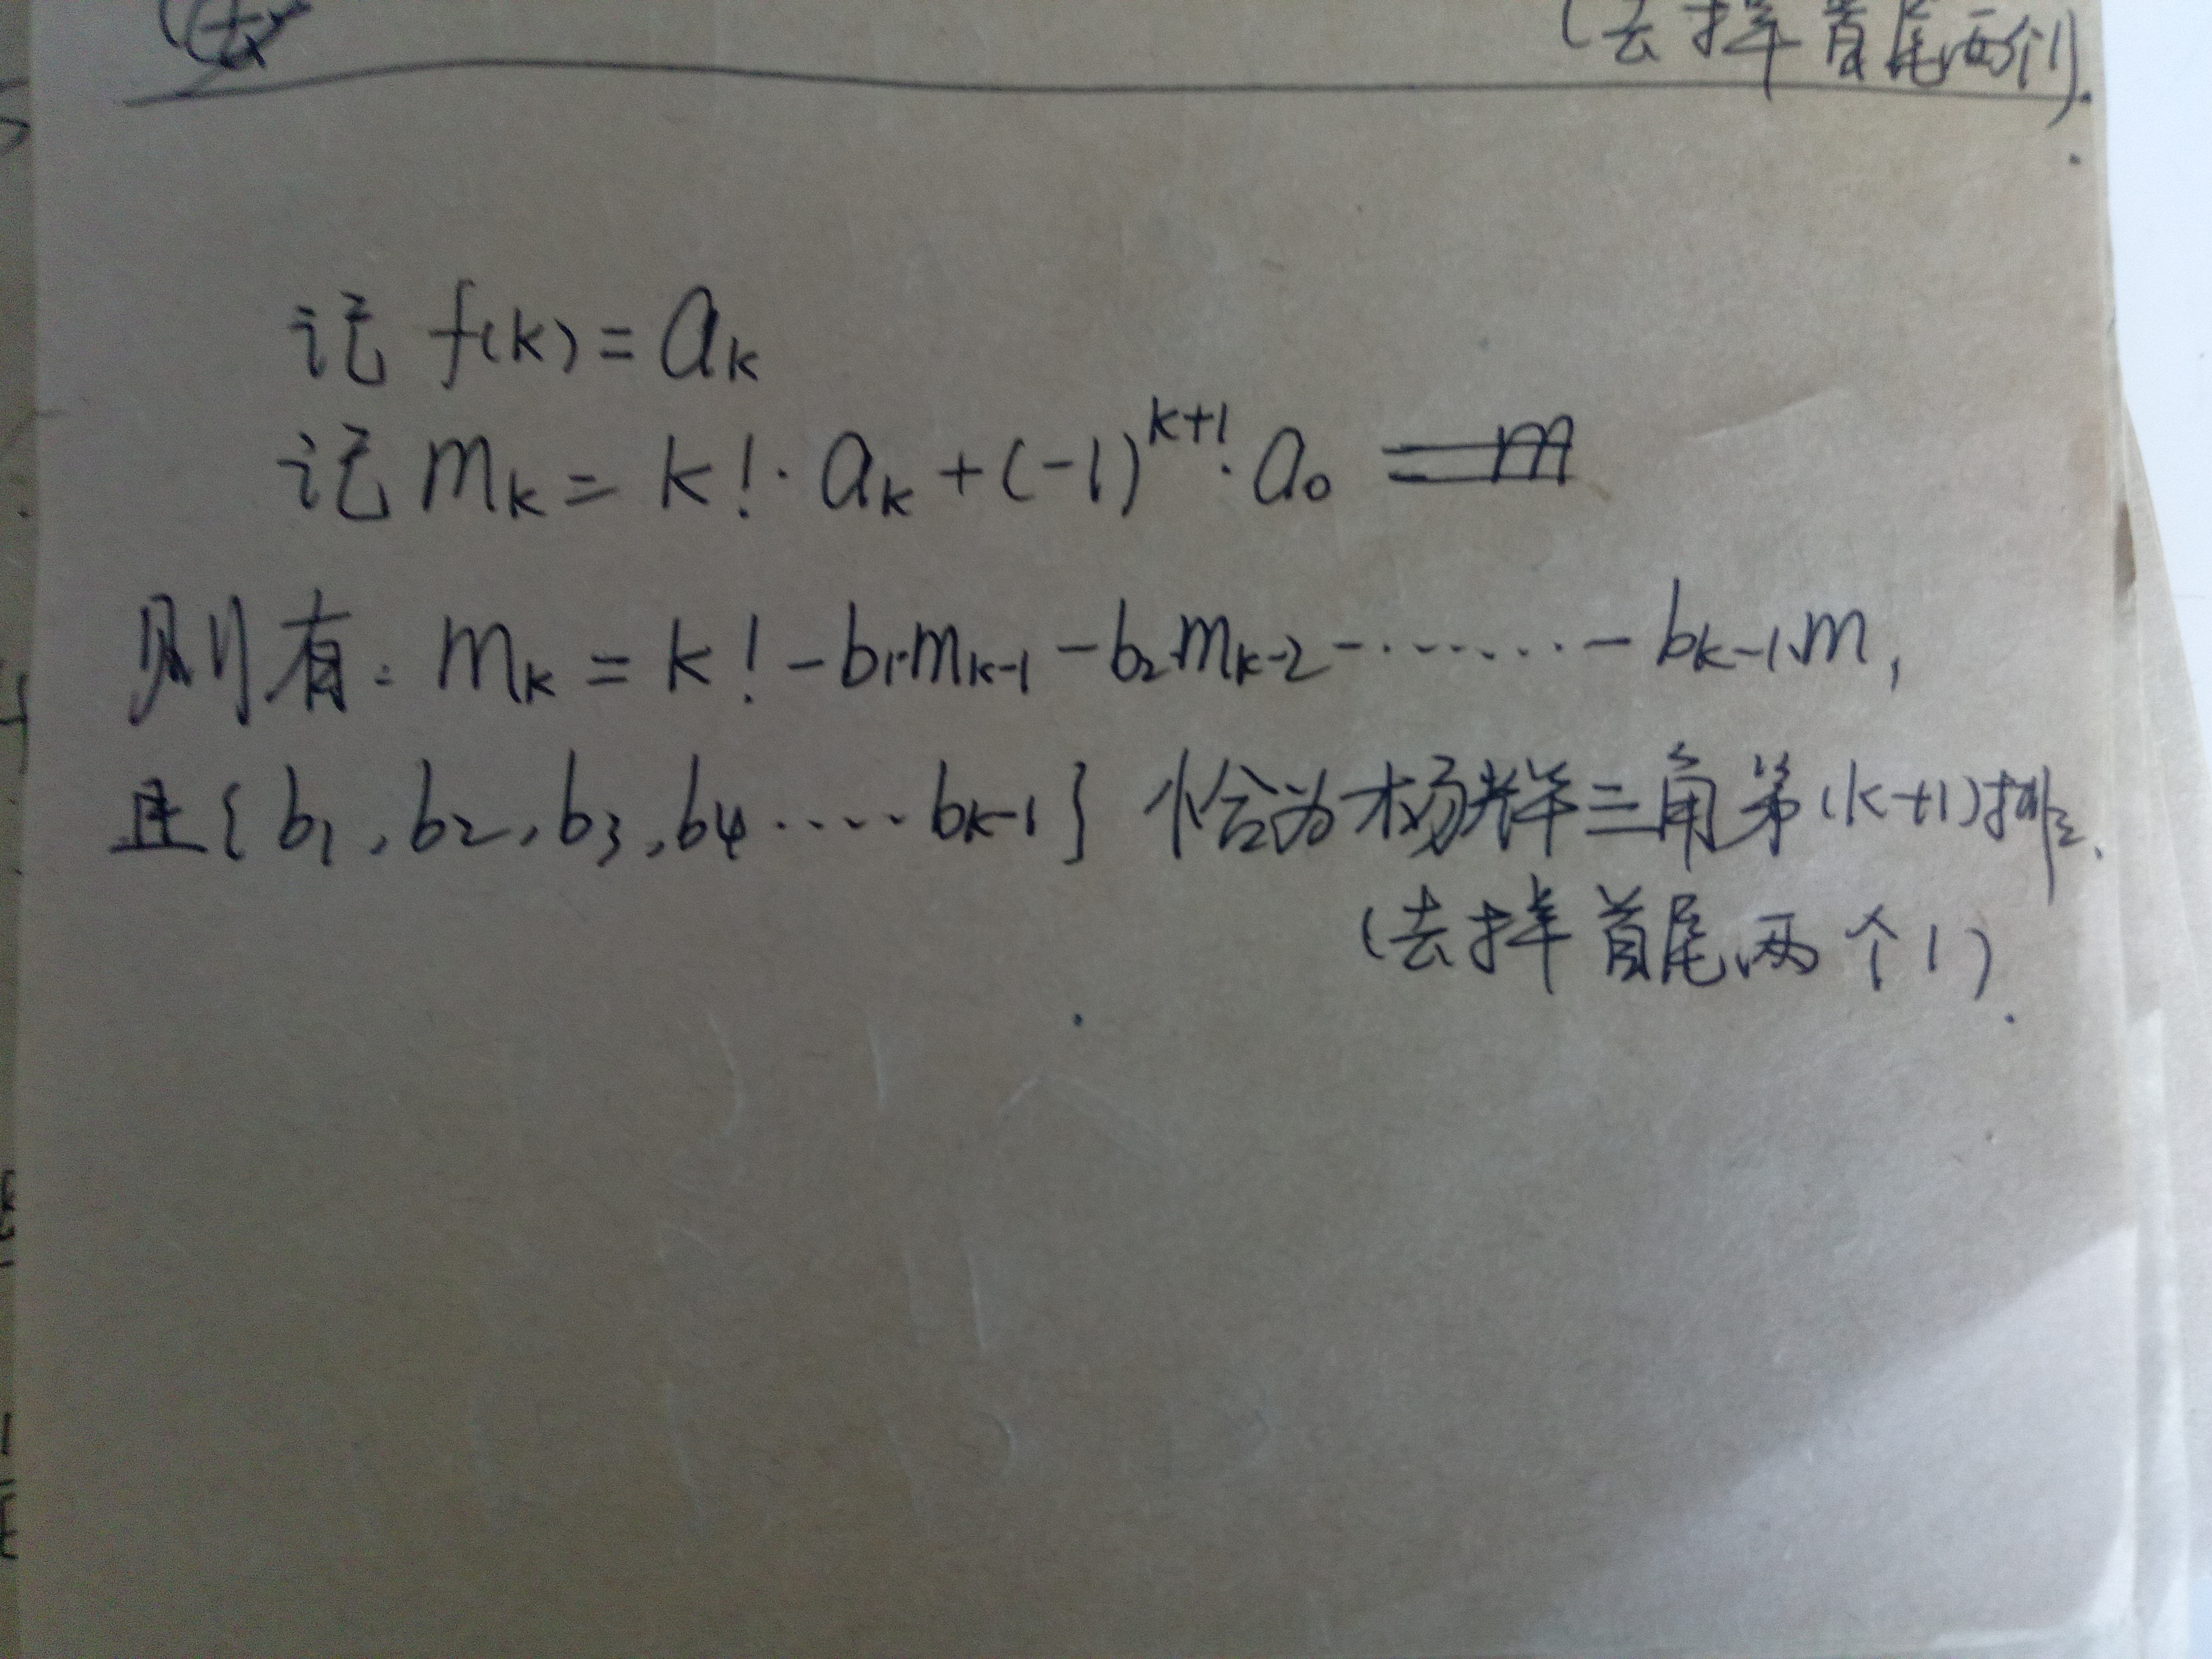 (去掉首尾两个1).
记 f(k) = aₖ
记 mₖ = k!·aₖ + (-1)ᵏ⁺¹·a₀
则有: mₖ = k! - b₁·mₖ₋₁ - b₂·mₖ₋₂ - ········ - bₖ₋₁·m₁
且{b₁, b₂, b₃, b₄ ···· bₖ₋₁} 恰为杨辉三角第(k+1)排.
(去掉首尾两个1).